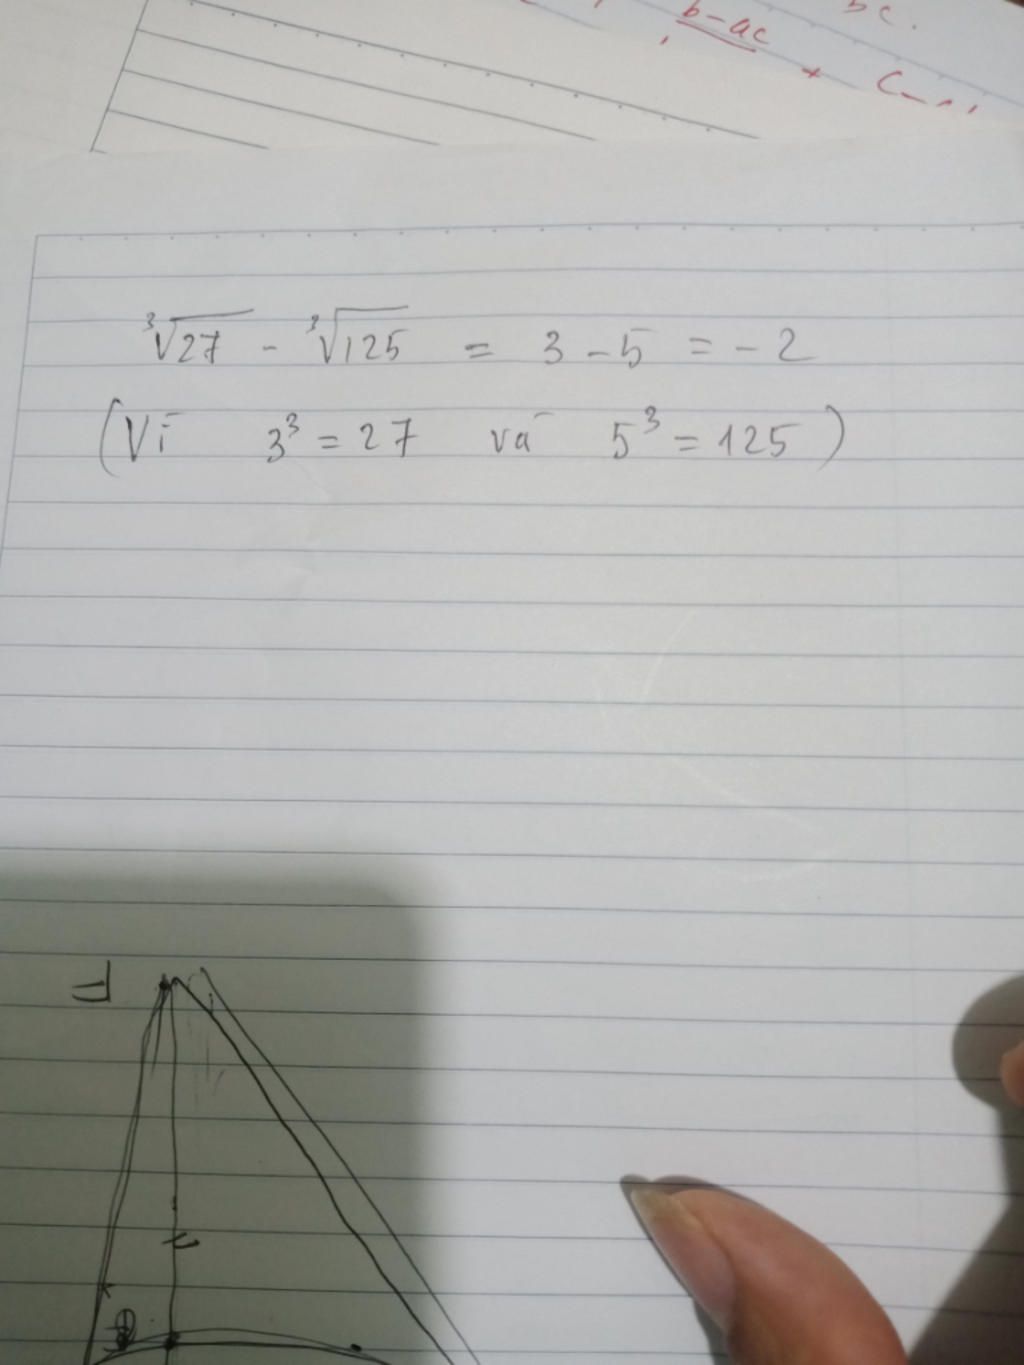 b-ac
bc.
+
∛27 - ∛125 = 3 - 5 = - 2
(Vì 3³ = 27 và 5³ = 125)